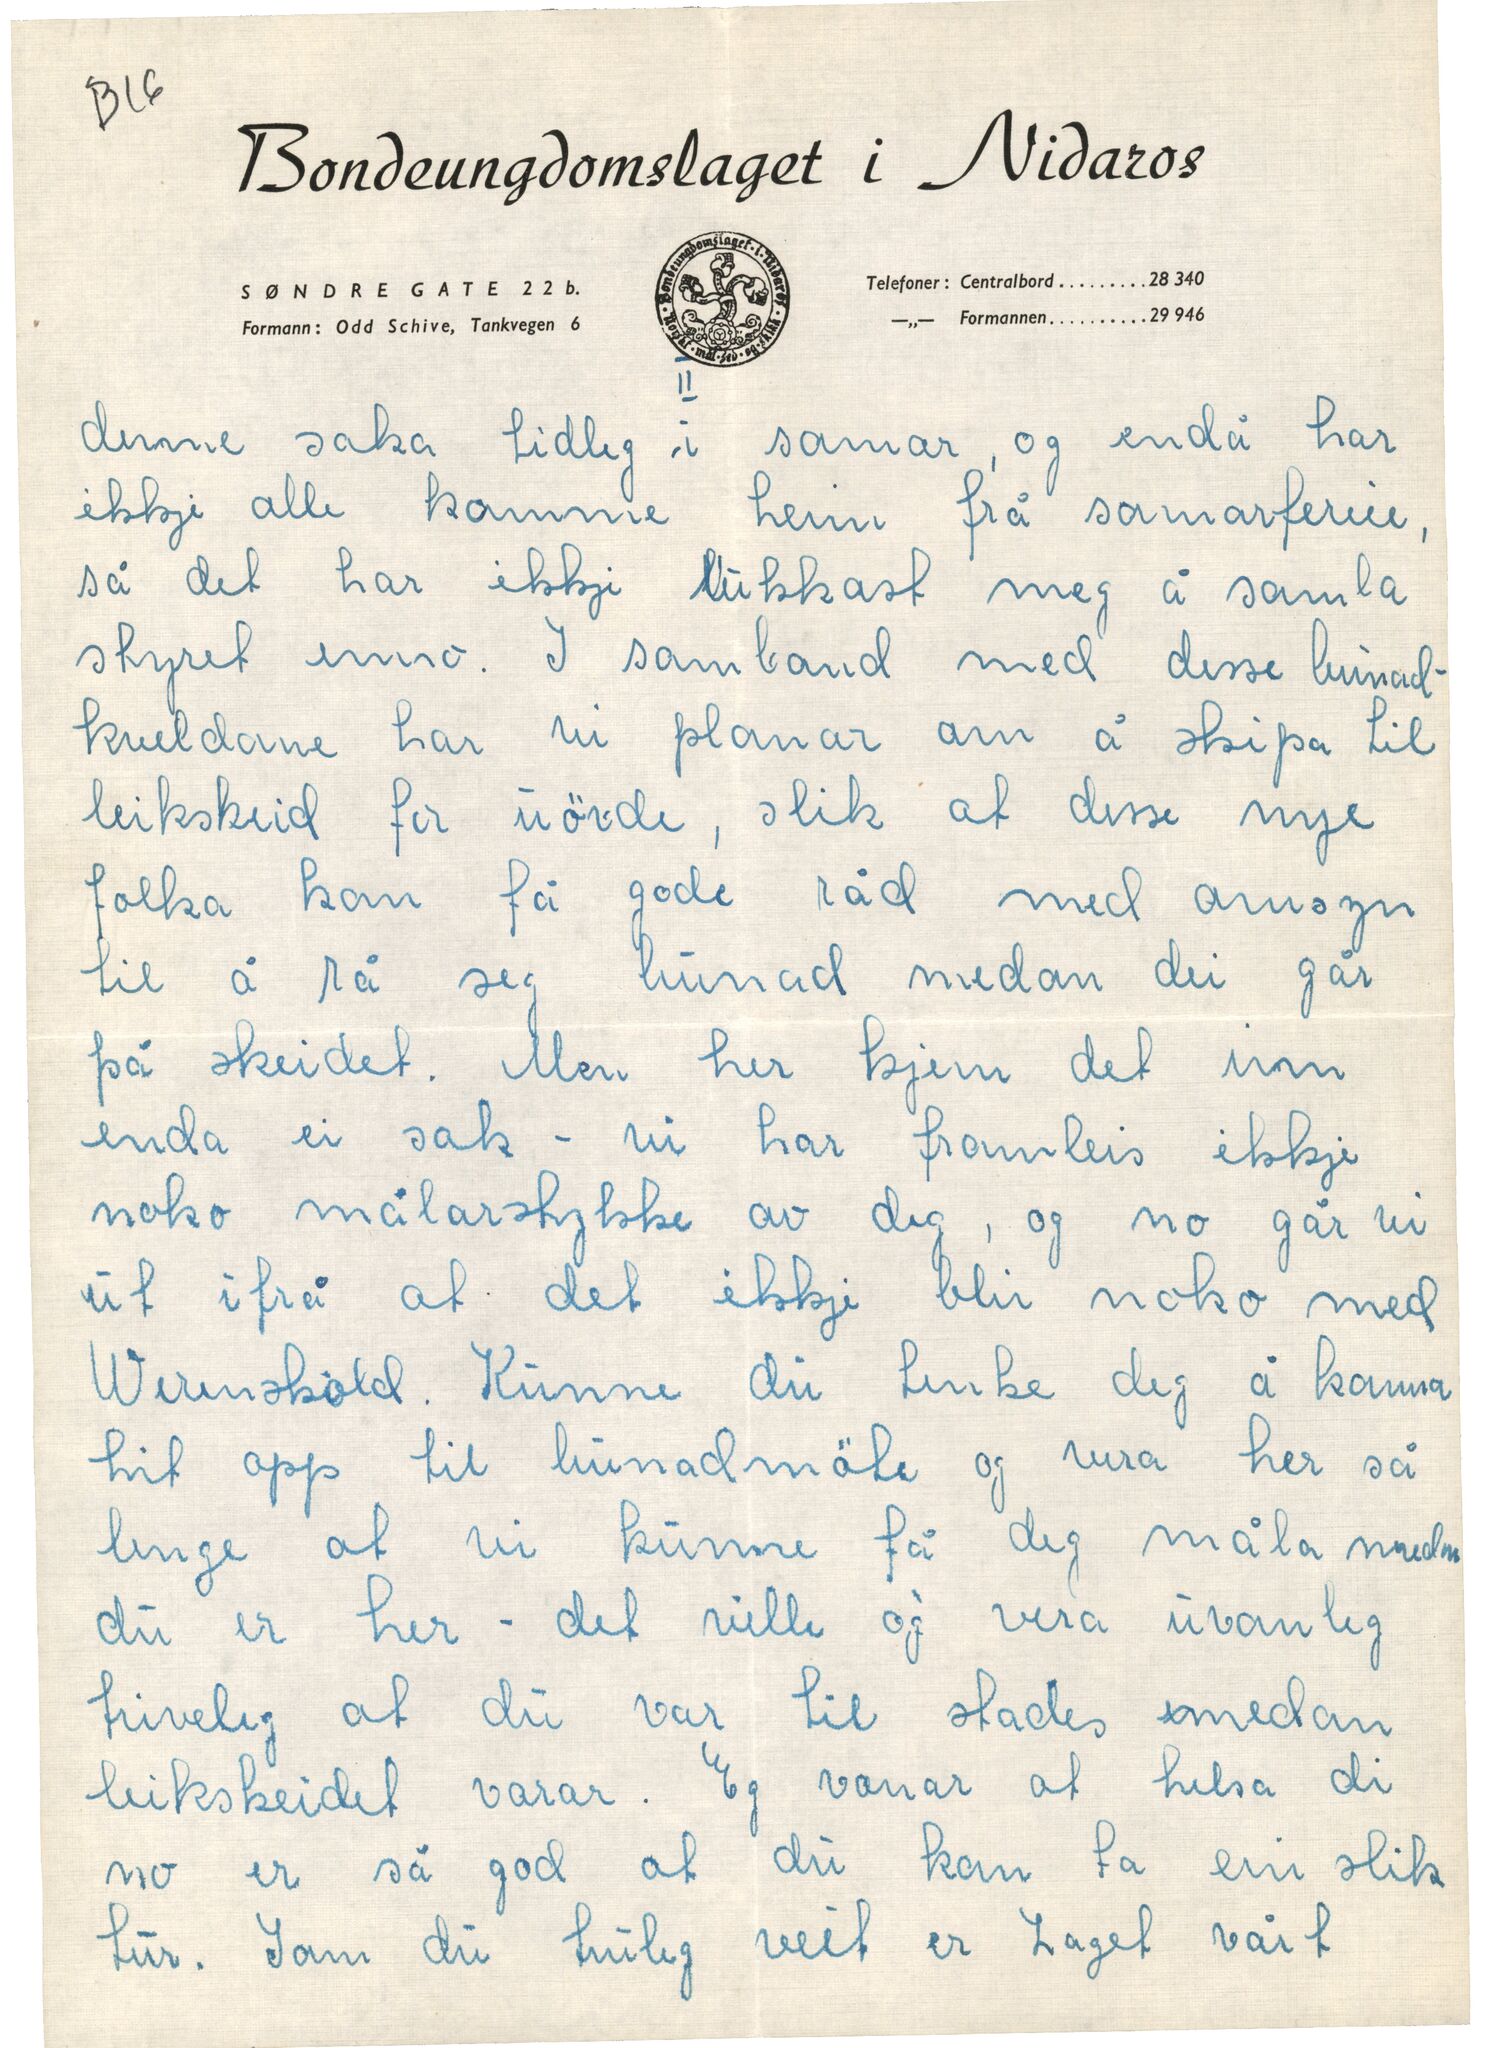 B16
Bondeungdomslaget i Nidaros
SØNDREGATE 22 b.
Formann: Odd Schive, Tankvegen 6
Bondeungdomslaget · i · Nidaros · Norskt · mål · sed · og · skikk
Telefoner: Centralbord.........28 340
—„— Formannen..........29 946
II
denne saka tidleg i somar, og endå har
ikkje alle komme heim frå somarferiie,
så det har ikkji lukkast meg å samla
styret enno. I samband med desse bunad-
kveldane har vi planar om å skipa til
leikskeid for uövde, slik at desse nye
folka kan få gode råd med omsyn
til å rå seg bunad medan dei går
på skeidet. Men her kjem det inn
enda ei sak - vi har framleis ikkje
noko målarstykke av deg, og no går vi
ut ifrå at det ikkje blir noko med
Werenskold. Kunne du tenke deg å komma
hit opp til bunadmöte og vera her så
lenge at vi kunne få deg måla medan
du er her - det ville òg vera uvanleg
triveleg at du var til stades medan
leikskeidet varar. Eg vonar at helsa di
no er så god at du kan ta ein slik
tur. Som du truleg veit er Laget vårt